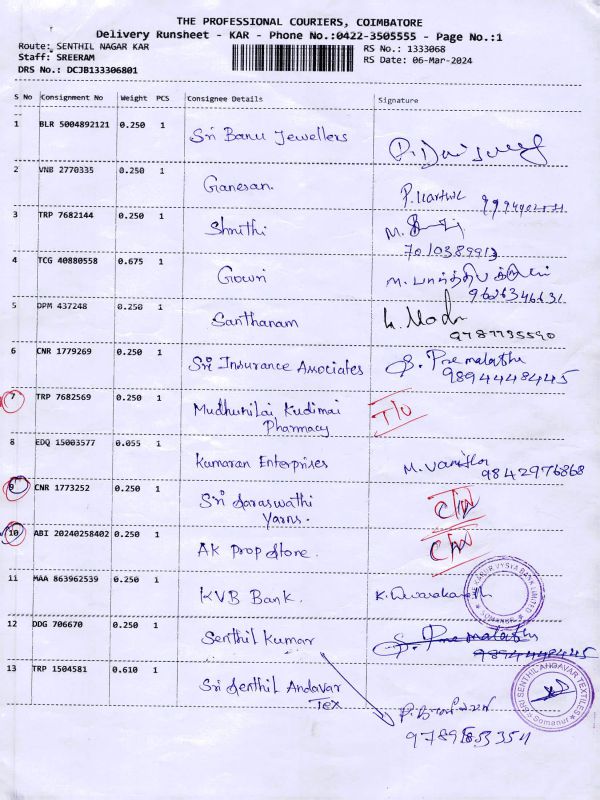 THE PROFESSIONAL COURIERS, COIMBATORE
Delivery Runsheet - KAR - Phone No.:0422-3505555 - Page No.:1
Route: SENTHIL NAGAR KAR
RS No.: 1333068
Staff: SREERAM
RS Date: 06-Mar-2024
DRS No.: DCJB133306801
S No Consignment No Weight PCS Consignee Details Signature
1 BLR 5004892121 0.250 1 Sri Banu Jewellers
2 VNB 2770335 0.250 1 Ganesan. P. Karthik
3 TRP 7682144 0.250 1 Shruthi M.
7010389913
4 TCG 40880558 0.675 1 Gowri M.
9626346631
5 DPM 437248 0.250 1 Santhanam
9787735590
6 CNR 1779269 0.250 1 Sri Insurance Associates S. Premalatha
9894448445
7 TRP 7682569 0.250 1 Mudhunilai Kudimai
Pharmacy
8 EDQ 15003577 0.055 1 Kumaran Enterprises M.
9842976868
9 CNR 1773252 0.250 1 Sri Saraswathi
Yarns.
10 ABI 20240258402 0.250 1 AK Prop Store.
11 MAA 863962539 0.250 1 KVB Bank. K.
THE KARUR VYSYA BANK LIMITED
SOMANUR
12 DDG 706670 0.250 1 Senthil Kumar S. Premalatha
9894448445
13 TRP 1504581 0.610 1 Sri Senthil Andavar
Tex
SRI SENTHIL ANDAVAR TEXTILES
Somanur